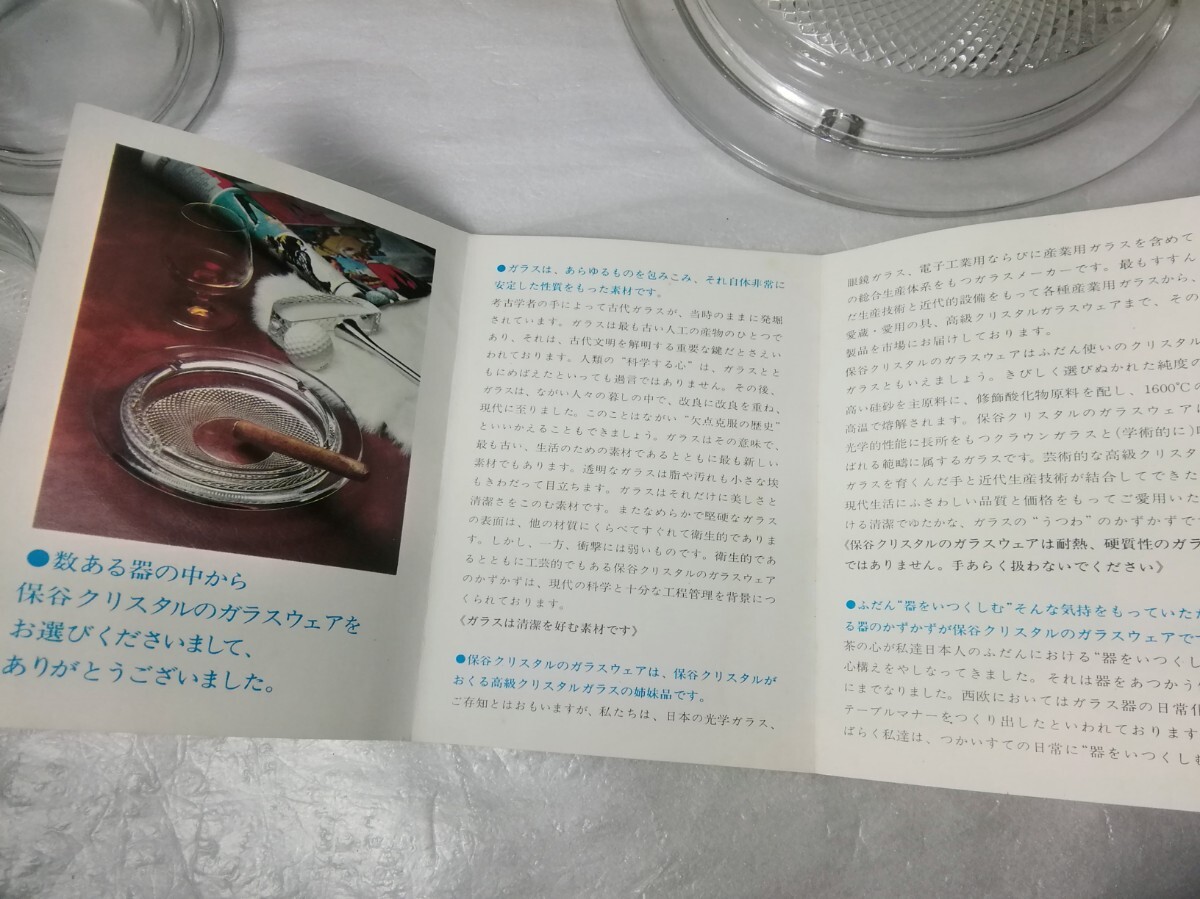 ●数ある器の中から
保谷クリスタルのガラスウェアを
お選びくださいまして、
ありがとうございました。
●ガラスは、あらゆるものを包みこみ、それ自体非常に
安定した性質をもった素材です。
考古学者の手によって古代ガラスが、当時のままに発掘
されています。ガラスは最も古い人工の産物のひとつで
あり、それは、古代文明を解明する重要な鍵だとさえい
われております。人類の“科学する心”は、ガラスとと
もにめばえたといっても過言ではありません。その後、
ガラスは、ながい人々の暮しの中で、改良に改良を重ね、
現代に至りました。このことはながい“欠点克服の歴史”
といいかえることもできましょう。ガラスはその意味で、
最も古い、生活のための素材であるとともに最も新しい
素材でもあります。透明なガラスは脂や汚れも小さな埃
もきわだって目立ちます。ガラスはそれだけに美しさと
清潔さをこのむ素材です。またなめらかで堅硬なガラス
の表面は、他の材質にくらべてすぐれて衛生的でありま
す。しかし、一方、衝撃には弱いものです。衛生的であ
るとともに工芸的でもある保谷クリスタルのガラスウェア
のかずかずは、現代の科学と十分な工程管理を背景につ
くられております。
《ガラスは清潔を好む素材です》
●保谷クリスタルのガラスウェアは、保谷クリスタルが
おくる高級クリスタルガラスの姉妹品です。
ご存知とはおもいますが、私たちは、日本の光学ガラス、
眼鏡ガラス、電子工業用ならびに産業用ガラスを含めて
の総合生産体系をもつガラスメーカーです。最もすすん
だ生産技術と近代的設備をもって各種産業用ガラスから、
愛蔵・愛用の具、高級クリスタルガラスウェアまで、その
製品を市場にお届けしております。
保谷クリスタルのガラスウェアはふだん使いのクリスタル
ガラスともいえましょう。きびしく選びぬかれた純度の
高い硅砂を主原料に、修飾酸化物原料を配し、1600℃の
高温で熔解されます。保谷クリスタルのガラスウェアは
光学的性能に長所をもつクラウンガラスと(学術的に)呼
ばれる範疇に属するガラスです。芸術的な高級クリスタ
ガラスを育くんだ手と近代生産技術が結合してできた
現代生活にふさわしい品質と価格をもってご愛用いた
ける清潔でゆたかな、ガラスの“うつわ”のかずかずで
《保谷クリスタルのガラスウェアは耐熱、硬質性のガラ
ではありません。手あらく扱わないでください》
●ふだん“器をいつくしむ”そんな気持をもっていただ
る器のかずかずが保谷クリスタルのガラスウェアで
茶の心が私達日本人のふだんにおける“器をいつくし
心構えをやしなってきました。それは器をあつかう
にまでなりました。西欧においてはガラス器の日常化
テーブルマナーをつくり出したといわれております
ばらく私達は、つかいすての日常に“器をいつくしむ